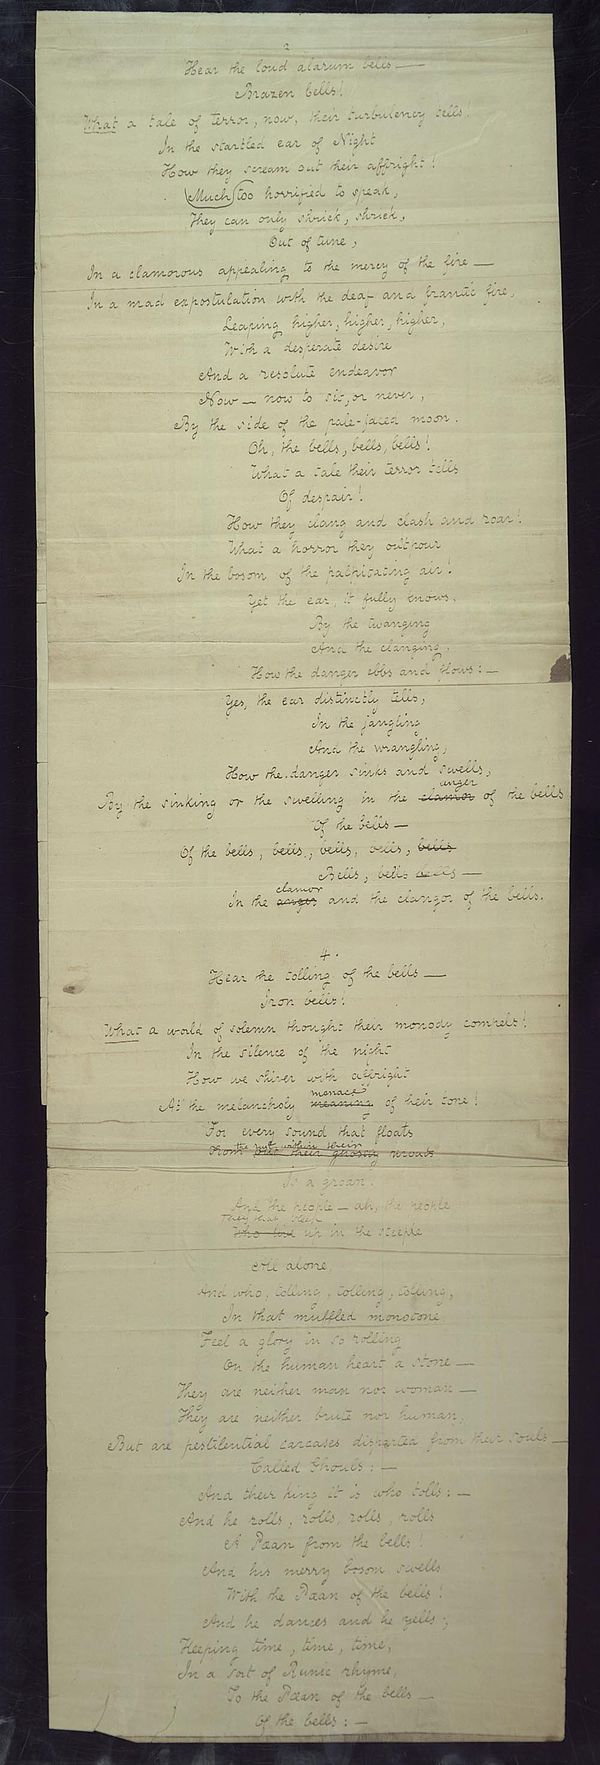 2
Hear the loud alarum bells —
Brazen bells!
What a tale of terror, now, their turbulency tells!
In the startled ear of Night
How they scream out their affright!
Much too horrified to speak,
They can only shriek, shriek,
Out of tune,
In a clamorous appealing to the mercy of the fire —
In a mad expostulation with the deaf and frantic fire,
Leaping higher, higher, higher,
With a desperate desire
And a resolute endeavor
Now — now to sit, or never,
By the side of the pale-faced moon.
Oh, the bells, bells, bells!
What a tale their terror tells
Of despair!
How they clang and clash and roar!
What a horror they outpour
In the bosom of the palpitating air!
Yet the ear, it fully knows,
By the twanging
And the clanging,
How the danger ebbs and flows: —
Yes, the ear distinctly tells,
In the jangling
And the wrangling,
How the danger sinks and swells,
anger
By the sinking or the swelling in the clamor of the bells
Of the bells —
Of the bells, bells, bells, bells, bells
Bells, bells bells —
clamor
In the anger and the clangor of the bells.
4.
Hear the tolling of the bells —
Iron bells!
What a world of solemn thought their monody compels!
In the silence of the night
How we shiver with affright
menace
At the melancholy meaning of their tone!
For every sound that floats
the rust within their
From their ghostly throats
Is a groan.
And the people — ah, the people
They that sleep
Who live up in the steeple
All alone,
And who, tolling, tolling, tolling,
In that muffled monotone,
Feel a glory in so rolling
On the human heart a stone —
They are neither man nor woman —
They are neither brute nor human,
But are pestilential carcases disparted from their souls —
Called Ghouls: —
And their king it is who tolls: —
And he rolls, rolls, rolls, rolls
A Pæan from the bells!
And his merry bosom swells
With the Pæan of the bells!
And he dances and he yells;
Keeping time, time, time,
In a sort of Runic rhyme,
To the Pæan of the bells —
Of the bells: —